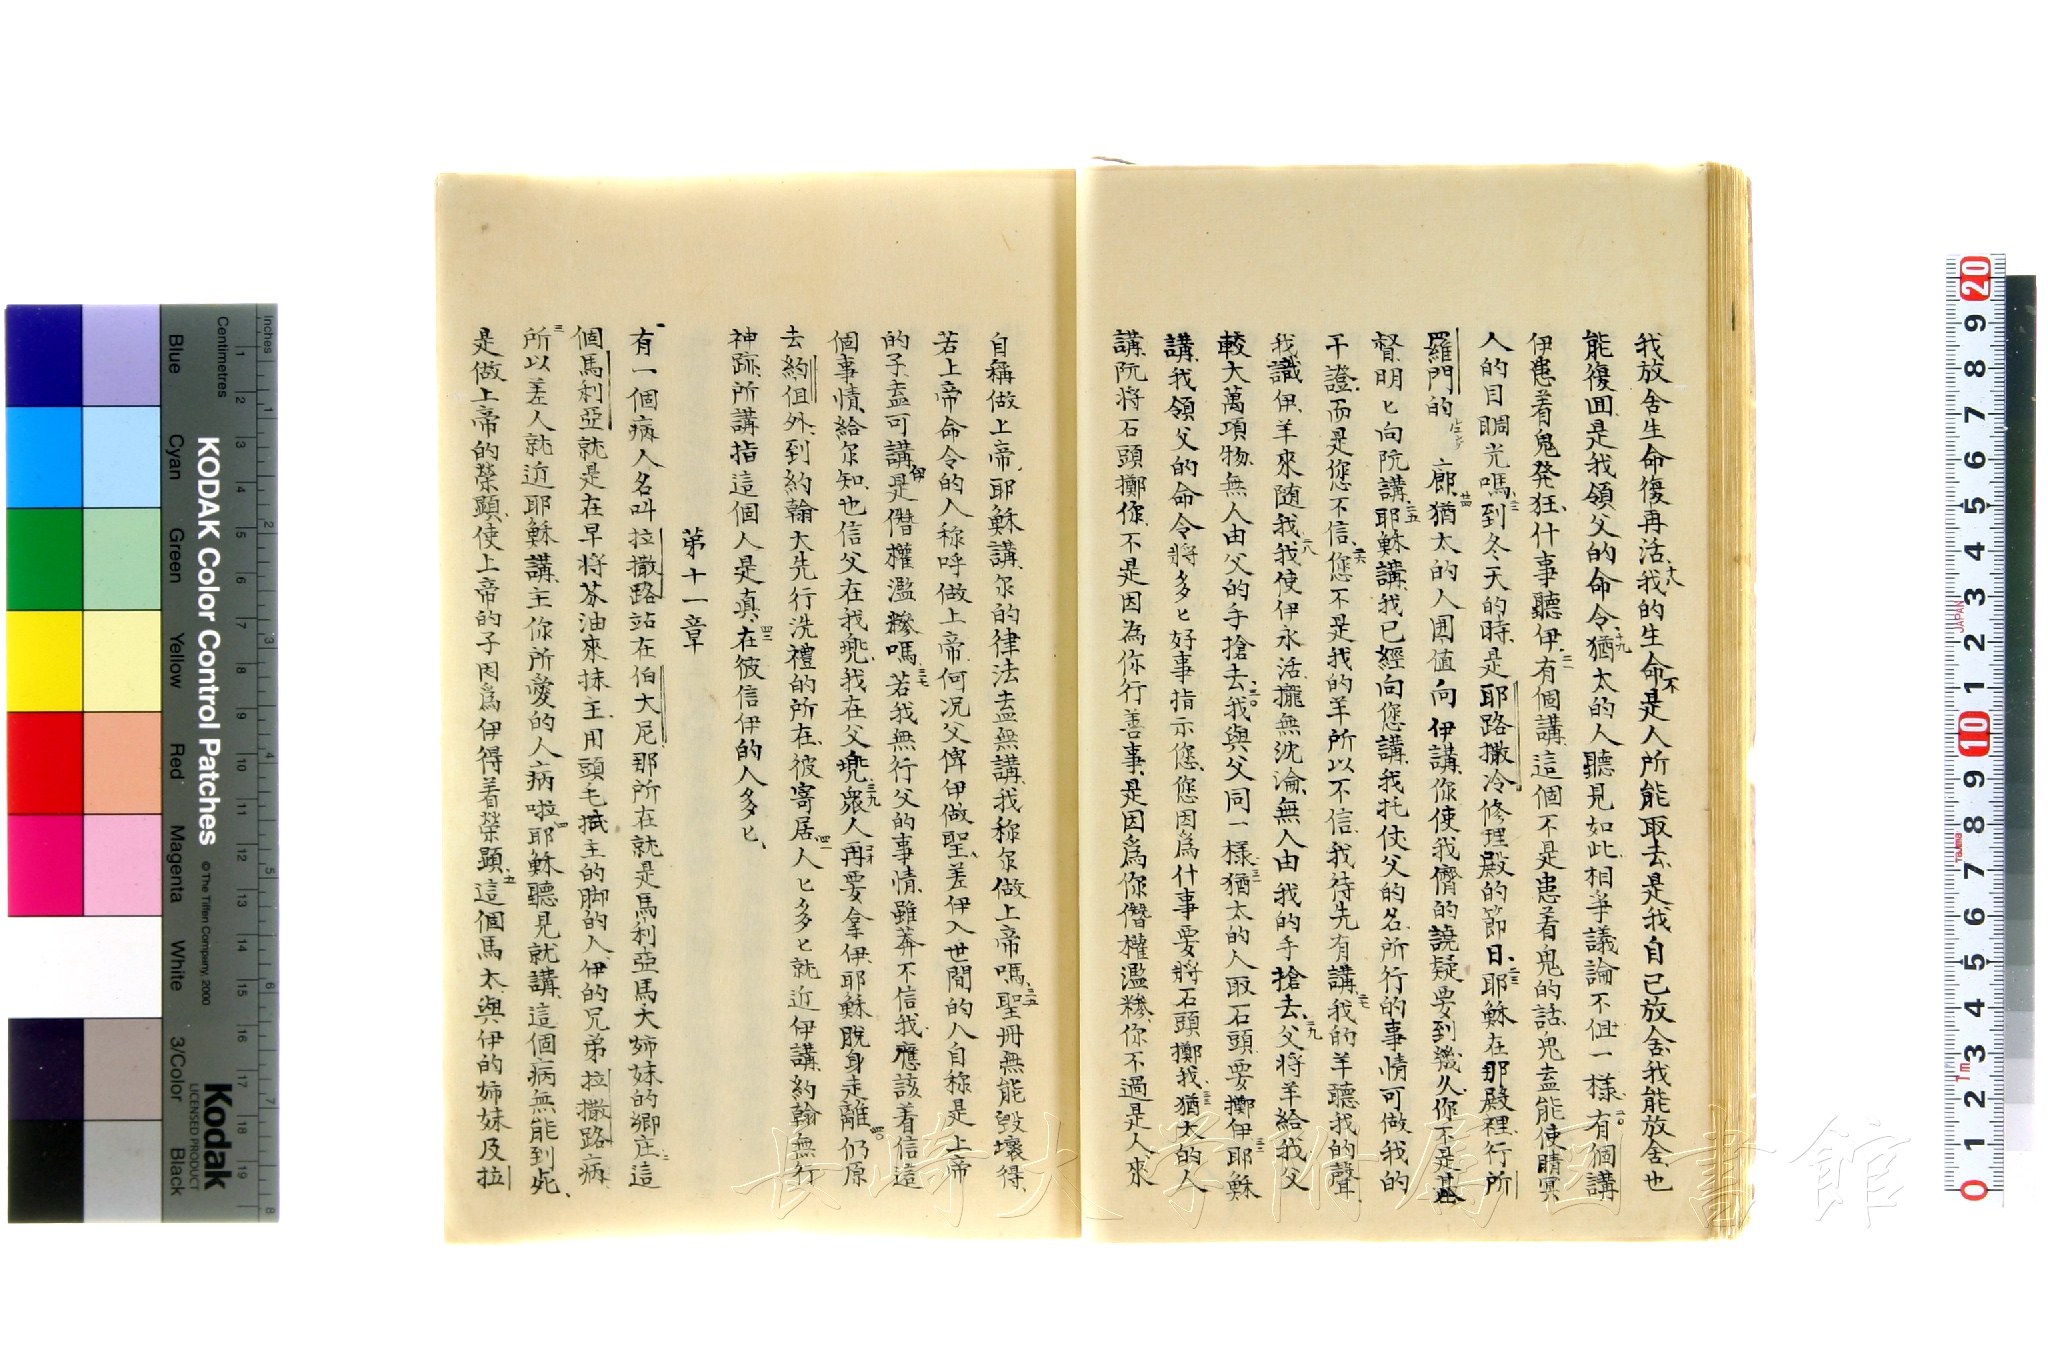 我放舍生命復再活十八我的生命不是人所能取去是我自己放舍我能放舍也
能復囬是我領父的命令十九猶太的人聽見如此相爭議論不但一樣二〇有個講
伊患着鬼発狂什事聽伊二一有個講這個不是患着鬼的話鬼盍能使睛冥
人的目睭光嗎二二到冬天的時是耶路撒冷修理殿的節日二三耶穌在那殿裡行所
羅門的廊二四猶太的人圍值向伊講你使我儕的譊疑要到幾久你不是基
督明匕向阮講二五耶穌講我已經向您講我托仗父的名所行的事情可做我的
干證而是您不信二六您不是我的羊所以不信我待先有講二七我的羊聽我的聲
我識伊羊來随我二八我使伊永活攏無沈淪無人由我的手搶去二九父將羊給我父
較大萬項物無人由父的手搶去三〇我與父同一樣三一猶太的人取石頭要擲伊三二耶穌
講我領父的命令將多匕好事指示您您因為什事要將石頭擲我三三猶太的人
講阮將石頭擲你不是因為你行善事是因爲你僭權濫糝你不過是人來
自稱做上帝耶穌講尔的律法盍無講我称尔做上帝嗎三五聖册無能毀壞得
若上帝命令的人称呼做上帝何况父俾伊做聖差伊入世間的人自称是上帝
的子盍可講伊是僭權濫糝嗎三七若我無行父的事情雖莾不信我應該着信這
個事情給尔知也信父在我兠我在父兠三九衆人再要拿伊耶穌脫身走離四〇仍原
去約但外到約翰大先行洗禮的所在彼寄居四一人匕多匕就近伊講約翰無行
神跡所講指這個人是真四二在彼信伊的人多匕
苐十一章
有一個病人名叫拉撒路站在伯大尼那所在就是馬利亞馬大姉妹的鄉庄二這
個馬利亞就是在早將芬油來抹主用頭毛拭主的脚的人伊的兄弟拉撒路病
三所以差人就近耶穌講主你所愛的人病啦四耶穌聽見就講這個病無能到死
是做上帝的榮顕使上帝的子因爲伊得着榮顕五這個馬太與伊的姉妹及拉
KODAK Color Control Patches
© The Tiffen Company, 2000
Kodak
LICENSED PRODUCT
Inches
Centimetres
Blue
Cyan
Green
Yellow
Red
Magenta
White
3/Color
Black
長崎大学附属図書館
JAPAN